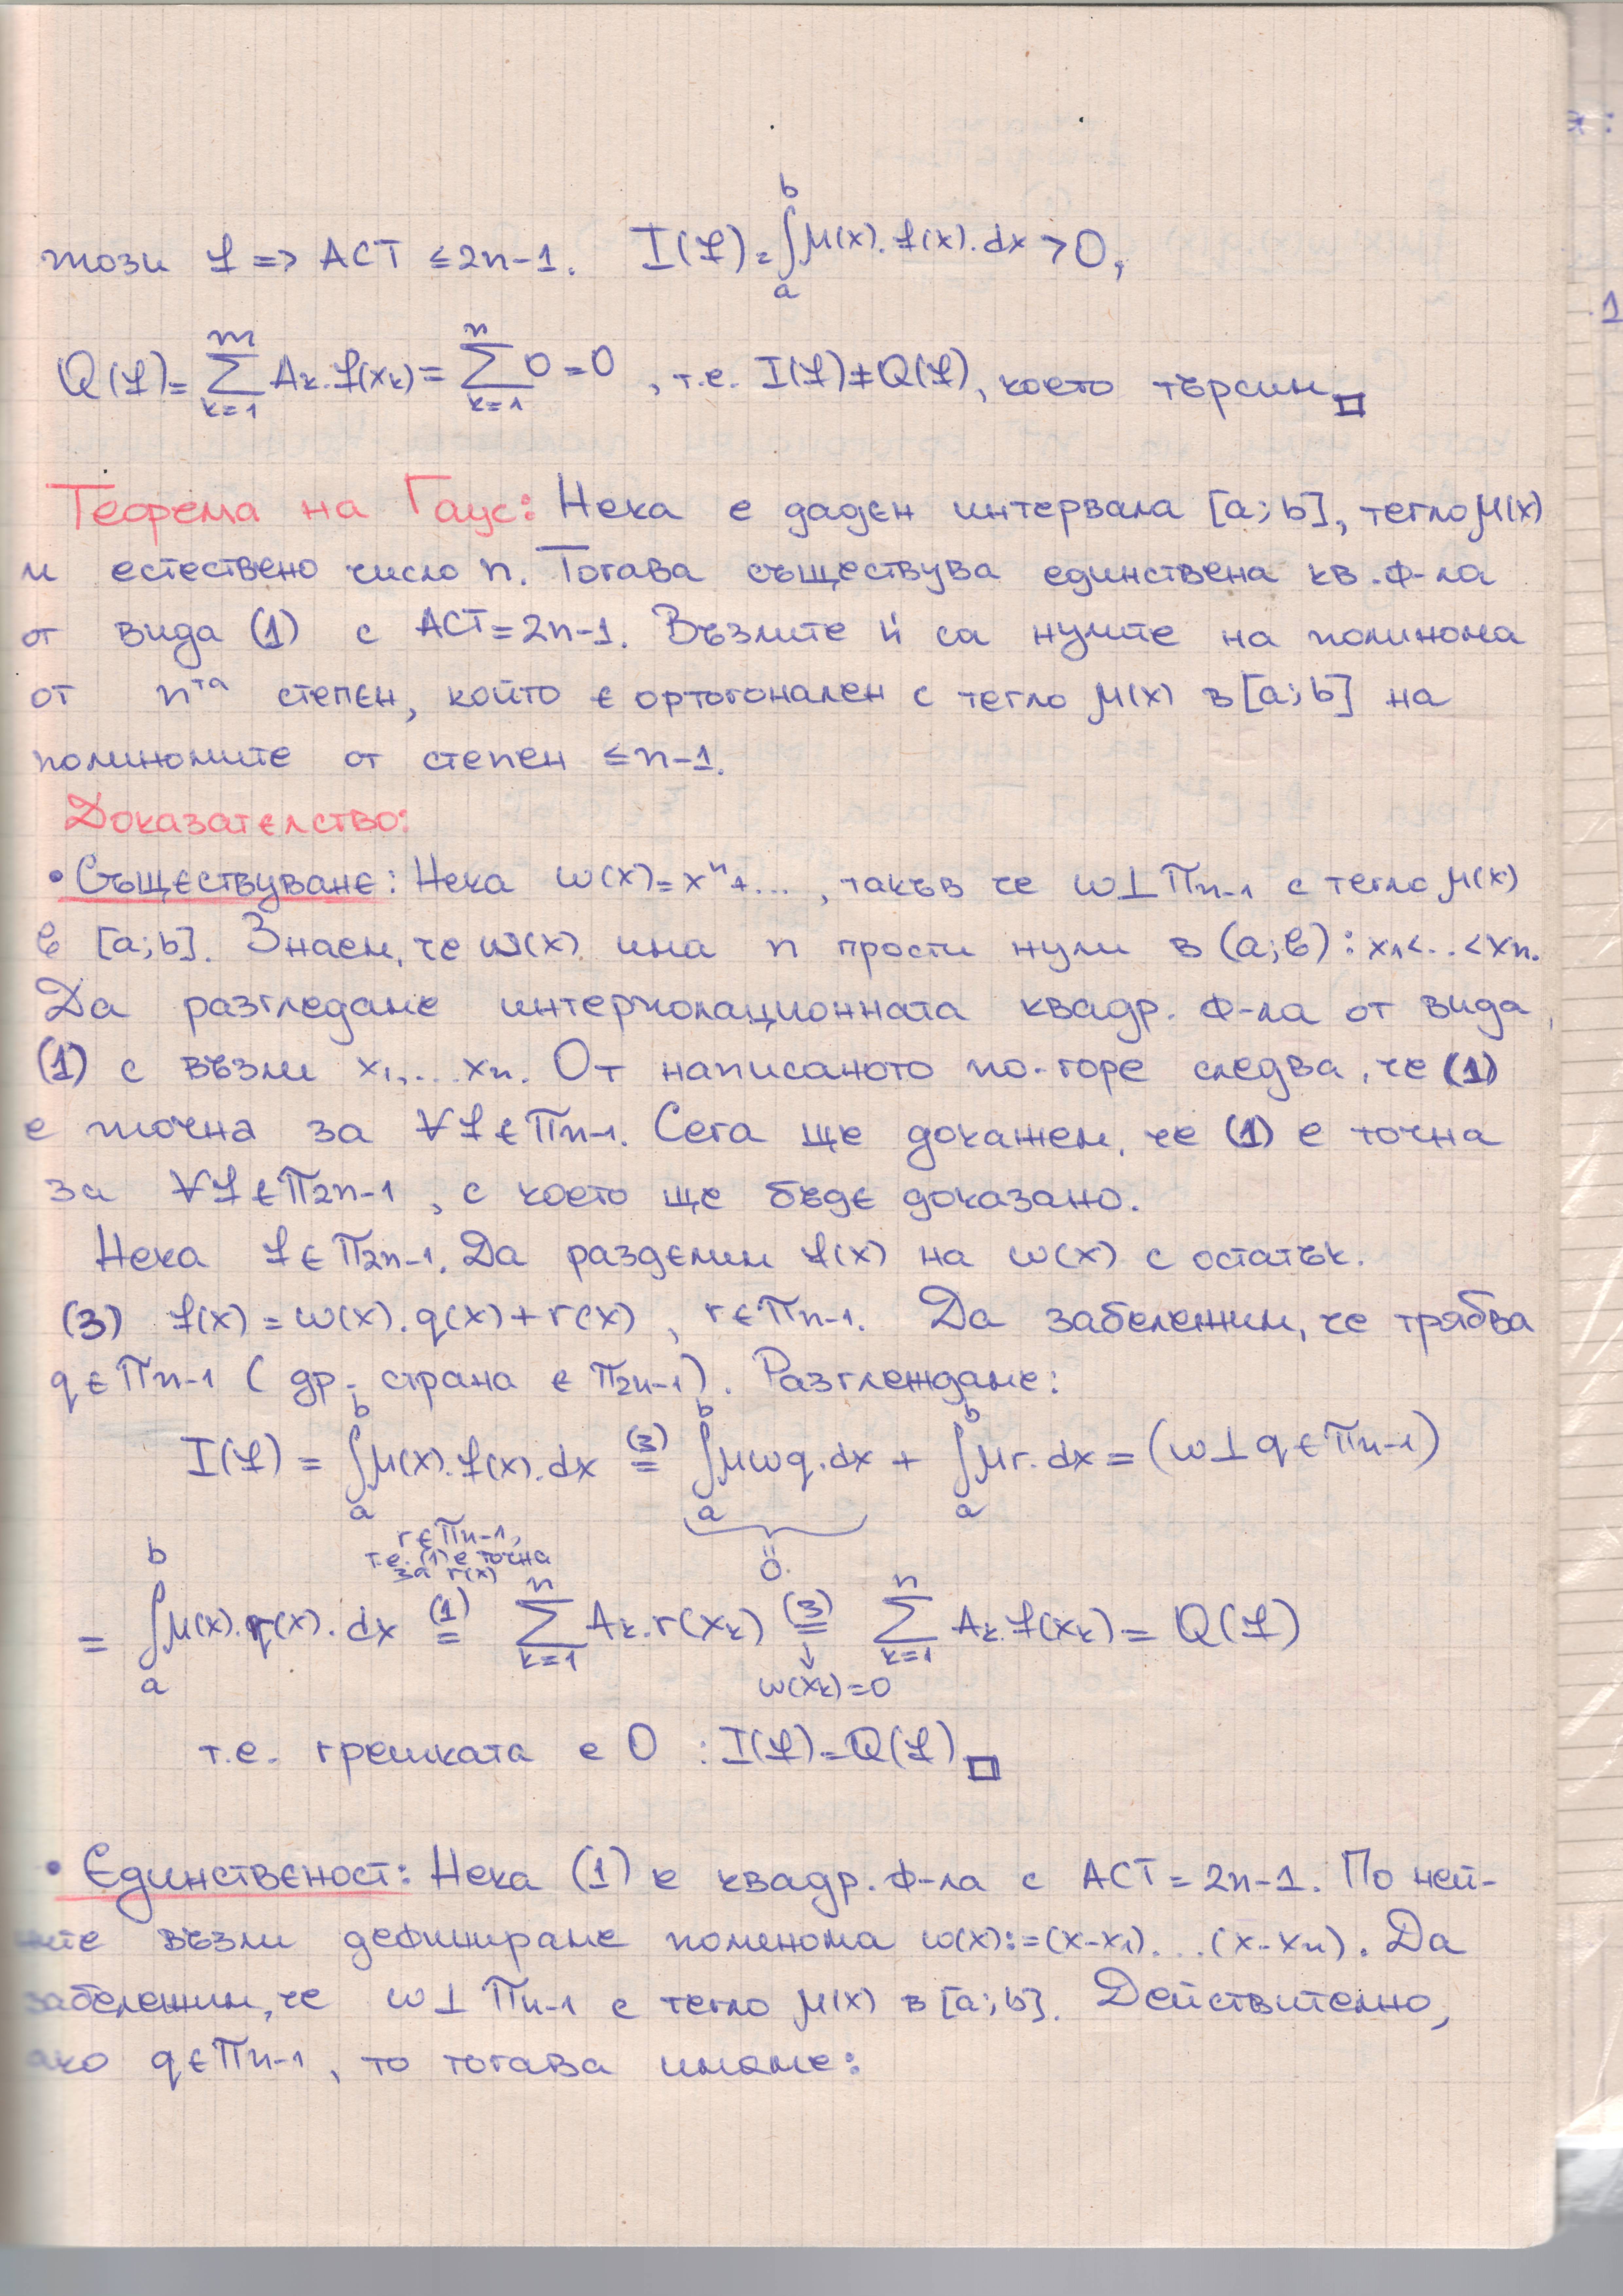 този f => АСТ ≤ 2n-1. I(f) = ∫_a^b μ(x).f(x).dx > 0,
Q(f) = ∑_{k=1}^m A_k.f(x_k) = ∑_{k=1}^n 0 = 0, т.е. I(f) ≠ Q(f), което търсим □
Теорема на Гаус: Нека е даден интервала [a;b], тегло μ(x)
и естествено число n. Тогава съществува единствена кв. ф-ла
от вида (1) с АСТ = 2n-1. Възлите ѝ са нулите на полинома
от n^та степен, който е ортогонален с тегло μ(x) в [a;b] на
полиномите от степен ≤ n-1.
Доказателство:
• Съществуване: Нека ω(x) = x^n + ..., такъв че ω ⊥ Π_{n-1} с тегло μ(x)
в [a;b]. Знаем, че ω(x) има n прости нули в (a;b): x_1 < ... < x_n.
Да разгледаме интерполационната квадр. ф-ла от вида
(1) с възли x_1, ... x_n. От написаното по-горе следва, че (1)
е точна за ∀f ∈ Π_{n-1}. Сега ще докажем, че (1) е точна
за ∀f ∈ Π_{2n-1}, с което ще бъде доказано.
Нека f ∈ Π_{2n-1}. Да разделим f(x) на ω(x) с остатък.
(3) f(x) = ω(x).q(x) + r(x), r ∈ Π_{n-1}. Да забележим, че трябва
q ∈ Π_{n-1} (др. страна ∈ Π_{2n-1}). Разглеждаме:
I(f) = ∫_a^b μ(x).f(x).dx (3)= ∫_a^b μωq.dx + ∫_a^b μr.dx = (ω ⊥ q ∈ Π_{n-1})
r ∈ Π_{n-1},
т.е. (1) е точна
за r(x)
"0.
= ∫_a^b μ(x).r(x).dx (1)= ∑_{k=1}^n A_k.r(x_k) (3)= ∑_{k=1}^n A_k.f(x_k) = Q(f)
↓
ω(x_k) = 0
т.е. грешката е 0 : I(f) = Q(f) □
• Единственост: Нека (1) е квадр. ф-ла с АСТ = 2n-1. По ней-
ните възли дефинираме поменома ω(x) := (x-x_1)...(x-x_n). Да
забележим, че ω ⊥ Π_{n-1} с тегло μ(x) в [a;b]. Действително,
ако q ∈ Π_{n-1}, то тогава имаме: